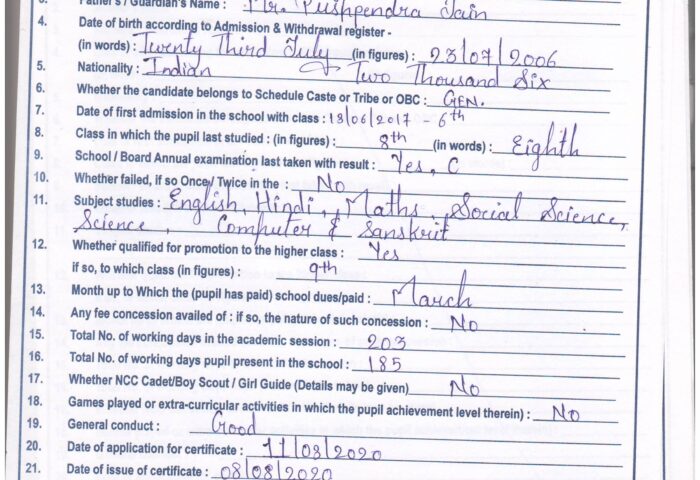 3. Father's / Guardian's Name : Mr. Pushpendra Jain
4. Date of birth according to Admission & Withdrawal register -
(in words) : Twenty Third July (in figures) : 23/07/2006
5. Nationality : Indian & Two Thousand Six
6. Whether the candidate belongs to Schedule Caste or Tribe or OBC : GEN.
7. Date of first admission in the school with class : 18/06/2017 - 6th
8. Class in which the pupil last studied : (in figures) : 8th (in words) : Eighth
9. School / Board Annual examination last taken with result : Yes, C
10. Whether failed, if so Once/ Twice in the : No
11. Subject studies : English, Hindi, Maths, Social Science,
Science, Computer & Sanskrit
12. Whether qualified for promotion to the higher class : Yes
if so, to which class (in figures) : 9th
13. Month up to Which the (pupil has paid) school dues/paid : March
14. Any fee concession availed of : if so, the nature of such concession : No
15. Total No. of working days in the academic session : 203
16. Total No. of working days pupil present in the school : 185
17. Whether NCC Cadet/Boy Scout / Girl Guide (Details may be given) No
18. Games played or extra-curricular activities in which the pupil achievement level therein) : No
19. General conduct : Good
20. Date of application for certificate : 11/08/2020
21. Date of issue of certificate : 08/08/2020